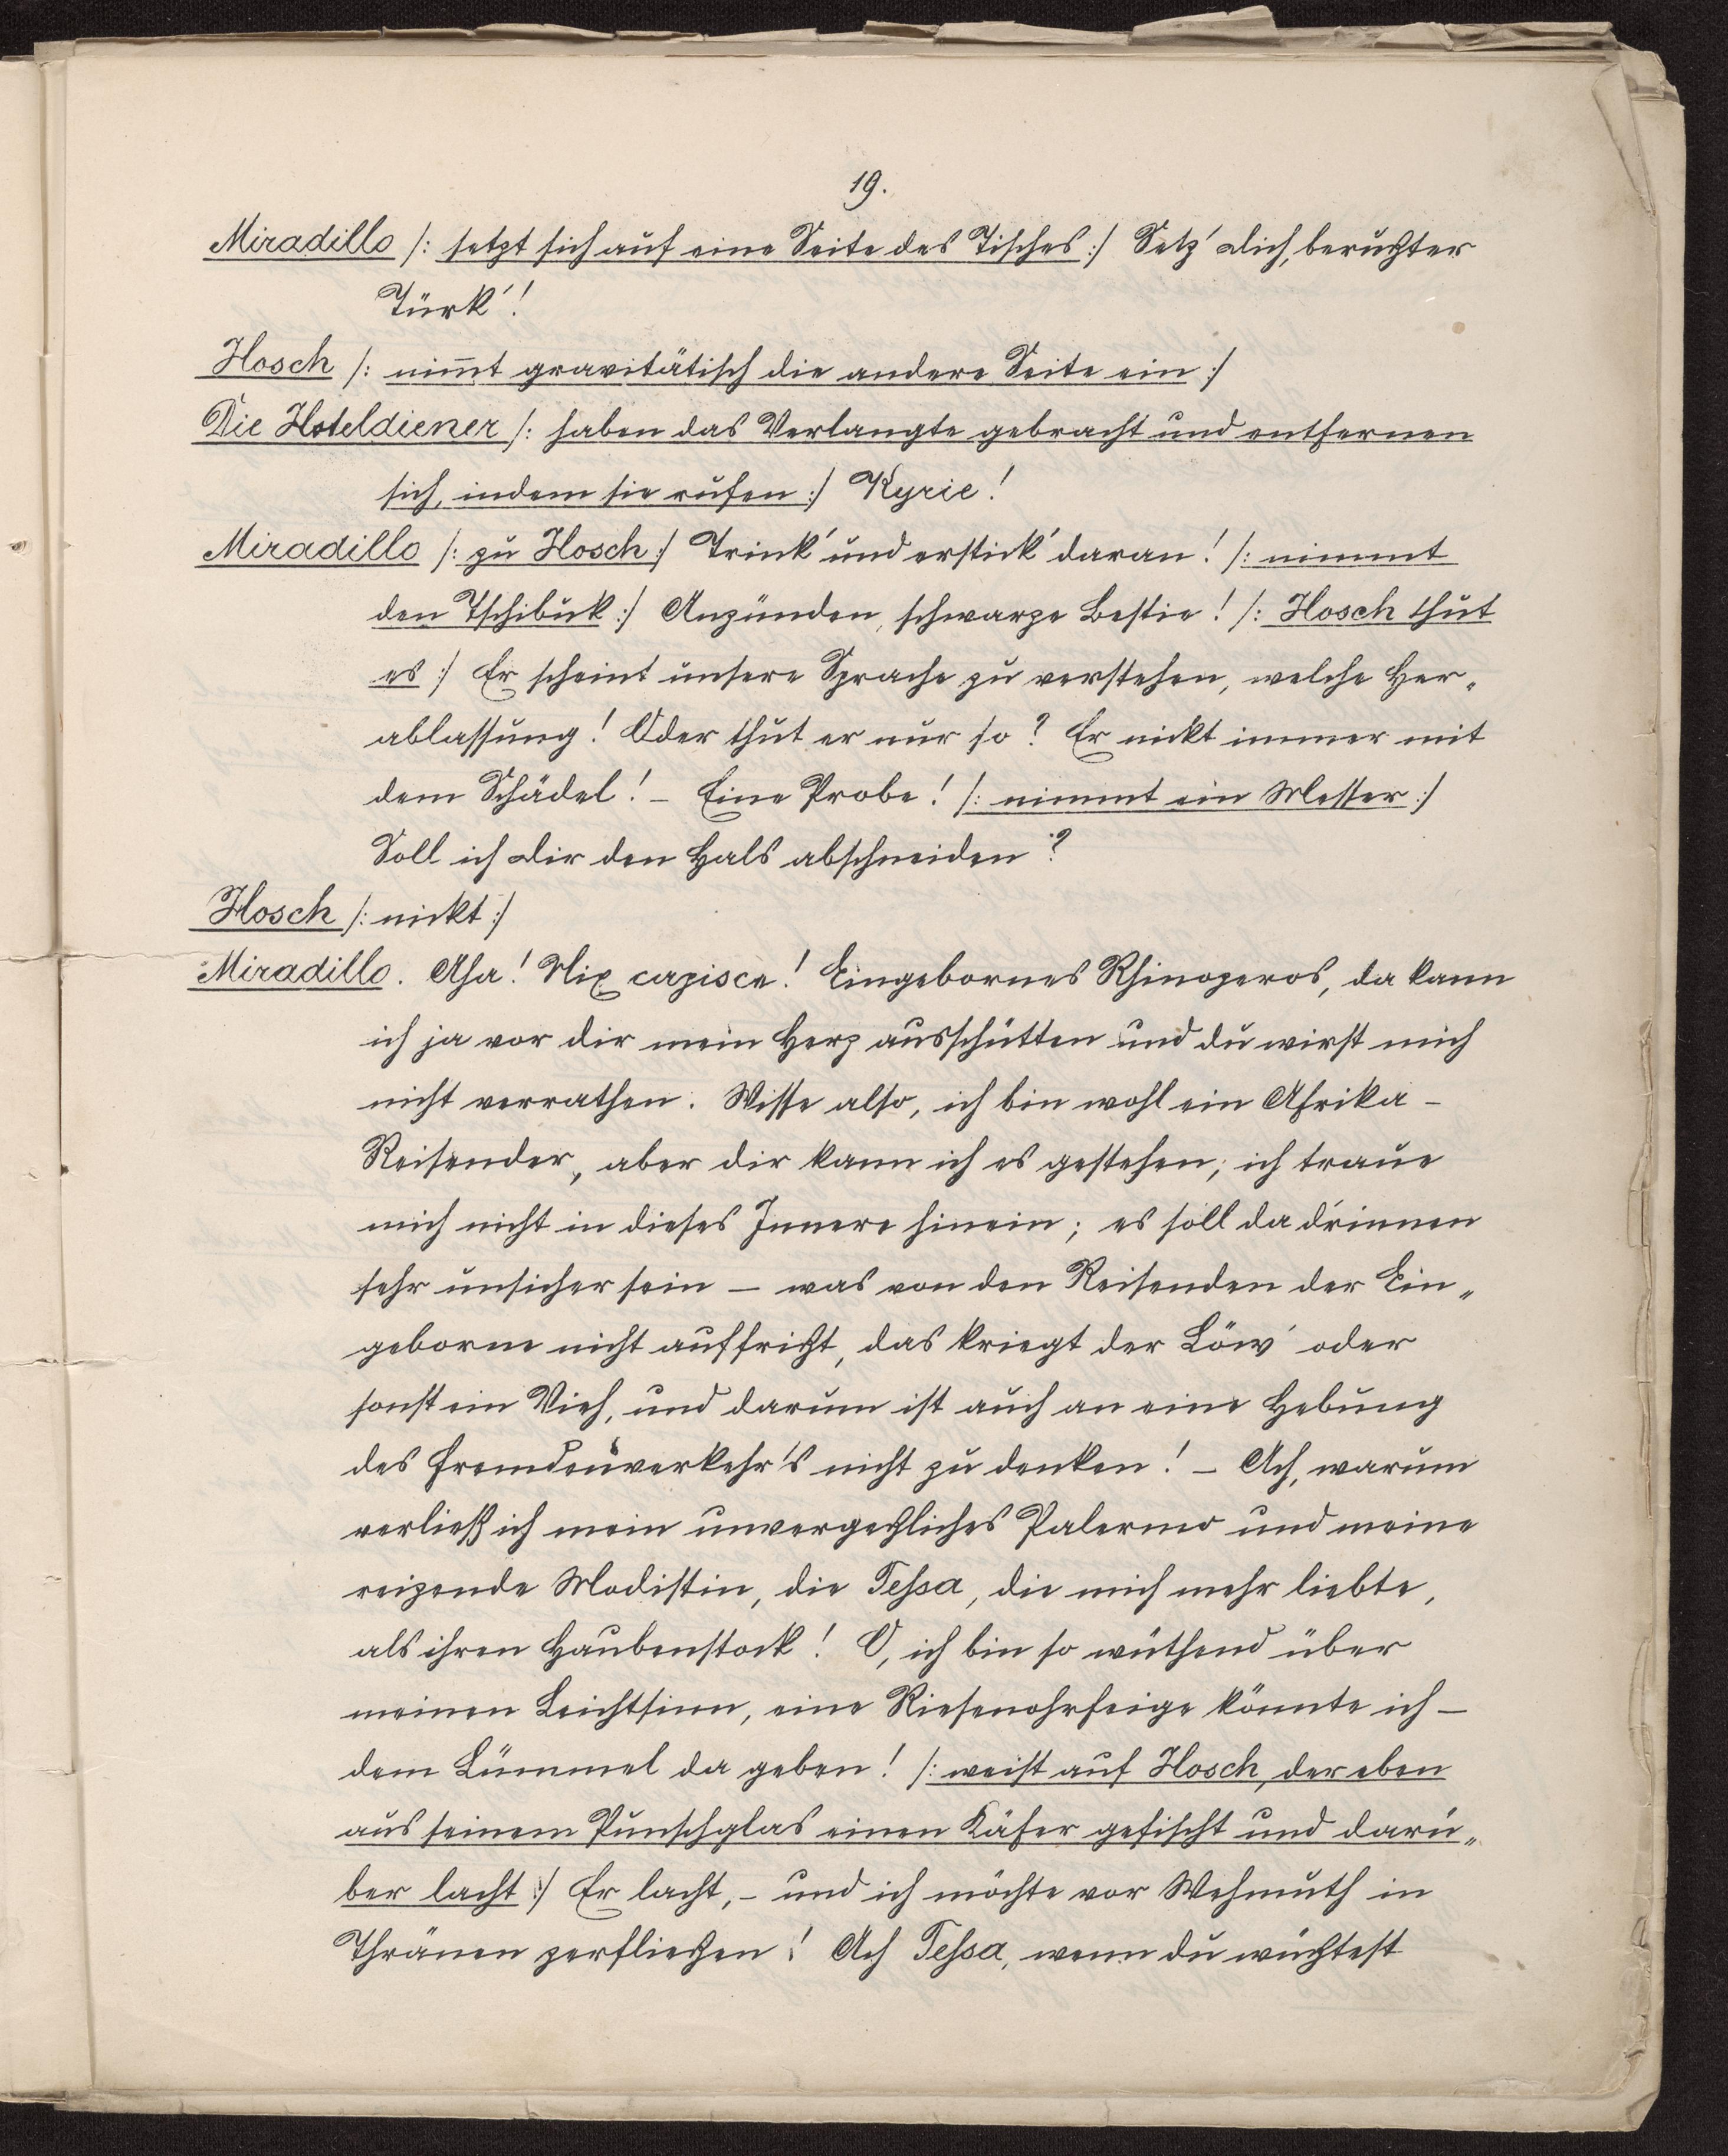 19.
Miradillo /: setzt sich auf eine Seite des Tisches :/ Setz' dich, berußter
Türk'!
Hosch /: nim̅t gravitätisch die andere Seite ein :/
Die Hoteldiener /: haben das Verlangte gebracht und entfernen
sich, indem sie rufen :/ Kyrie!
Miradillo /: zu Hosch :/ Trink' und erstick' daran! /: nimmt
den Tschibuk :/ Anzünden, schwarze Bestie! /: Hosch thut
es :/ Er scheint unsere Sprache zu verstehen, welche Her„
ablassung! Oder thut er nur so? Er nickt immer mit
dem Schädel! – Eine Probe! /: nimmt ein Messer :/
Soll ich dir den Hals abschneiden?
Hosch /: nickt :/
Miradillo. Aha! Nix capisce! Eingebornes Rhinozeros, da kann
ich ja vor dir mein Herz ausschütten und du wirst mich
nicht verrathen. Wisse also, ich bin wohl ein Afrika –
Reisender, aber dir kann ich es gestehen; ich traue
mich nicht in dieses Innere hinein; es soll da d'rinnen
sehr unsicher sein – was von den Reisenden der Ein„
geborne nicht auffrißt, das kriegt der Löw' oder
sonst ein Vieh, und darum ist auch an eine Hebung
des Fremdenverkehr's nicht zu denken! – Ach, warum
verließ ich mein unvergeßliches Palermo und meine
reizende Modistin, die Tessa, die mich mehr liebte,
als ihren Haubenstock! O, ich bin so wüthend über
meinen Leichtsinn, eine Riesenohrfeige könnte ich –
dem Lümmel da geben! /: weist auf Hosch, der eben
aus seinem Punschglas einen Käfer gefischt und darü„
ber lacht :/ Er lacht, – und ich möchte vor Wehmuth in
Thränen zerfließen! Ach Tessa, wenn du wüßtest